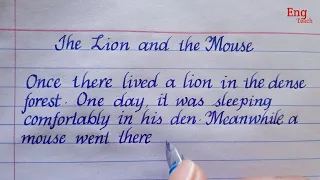 Eng
Teach
The Lion and the Mouse
Once there lived a lion in the dense
forest. One day, it was sleeping
comfortably in his den. Meanwhile a
mouse went there